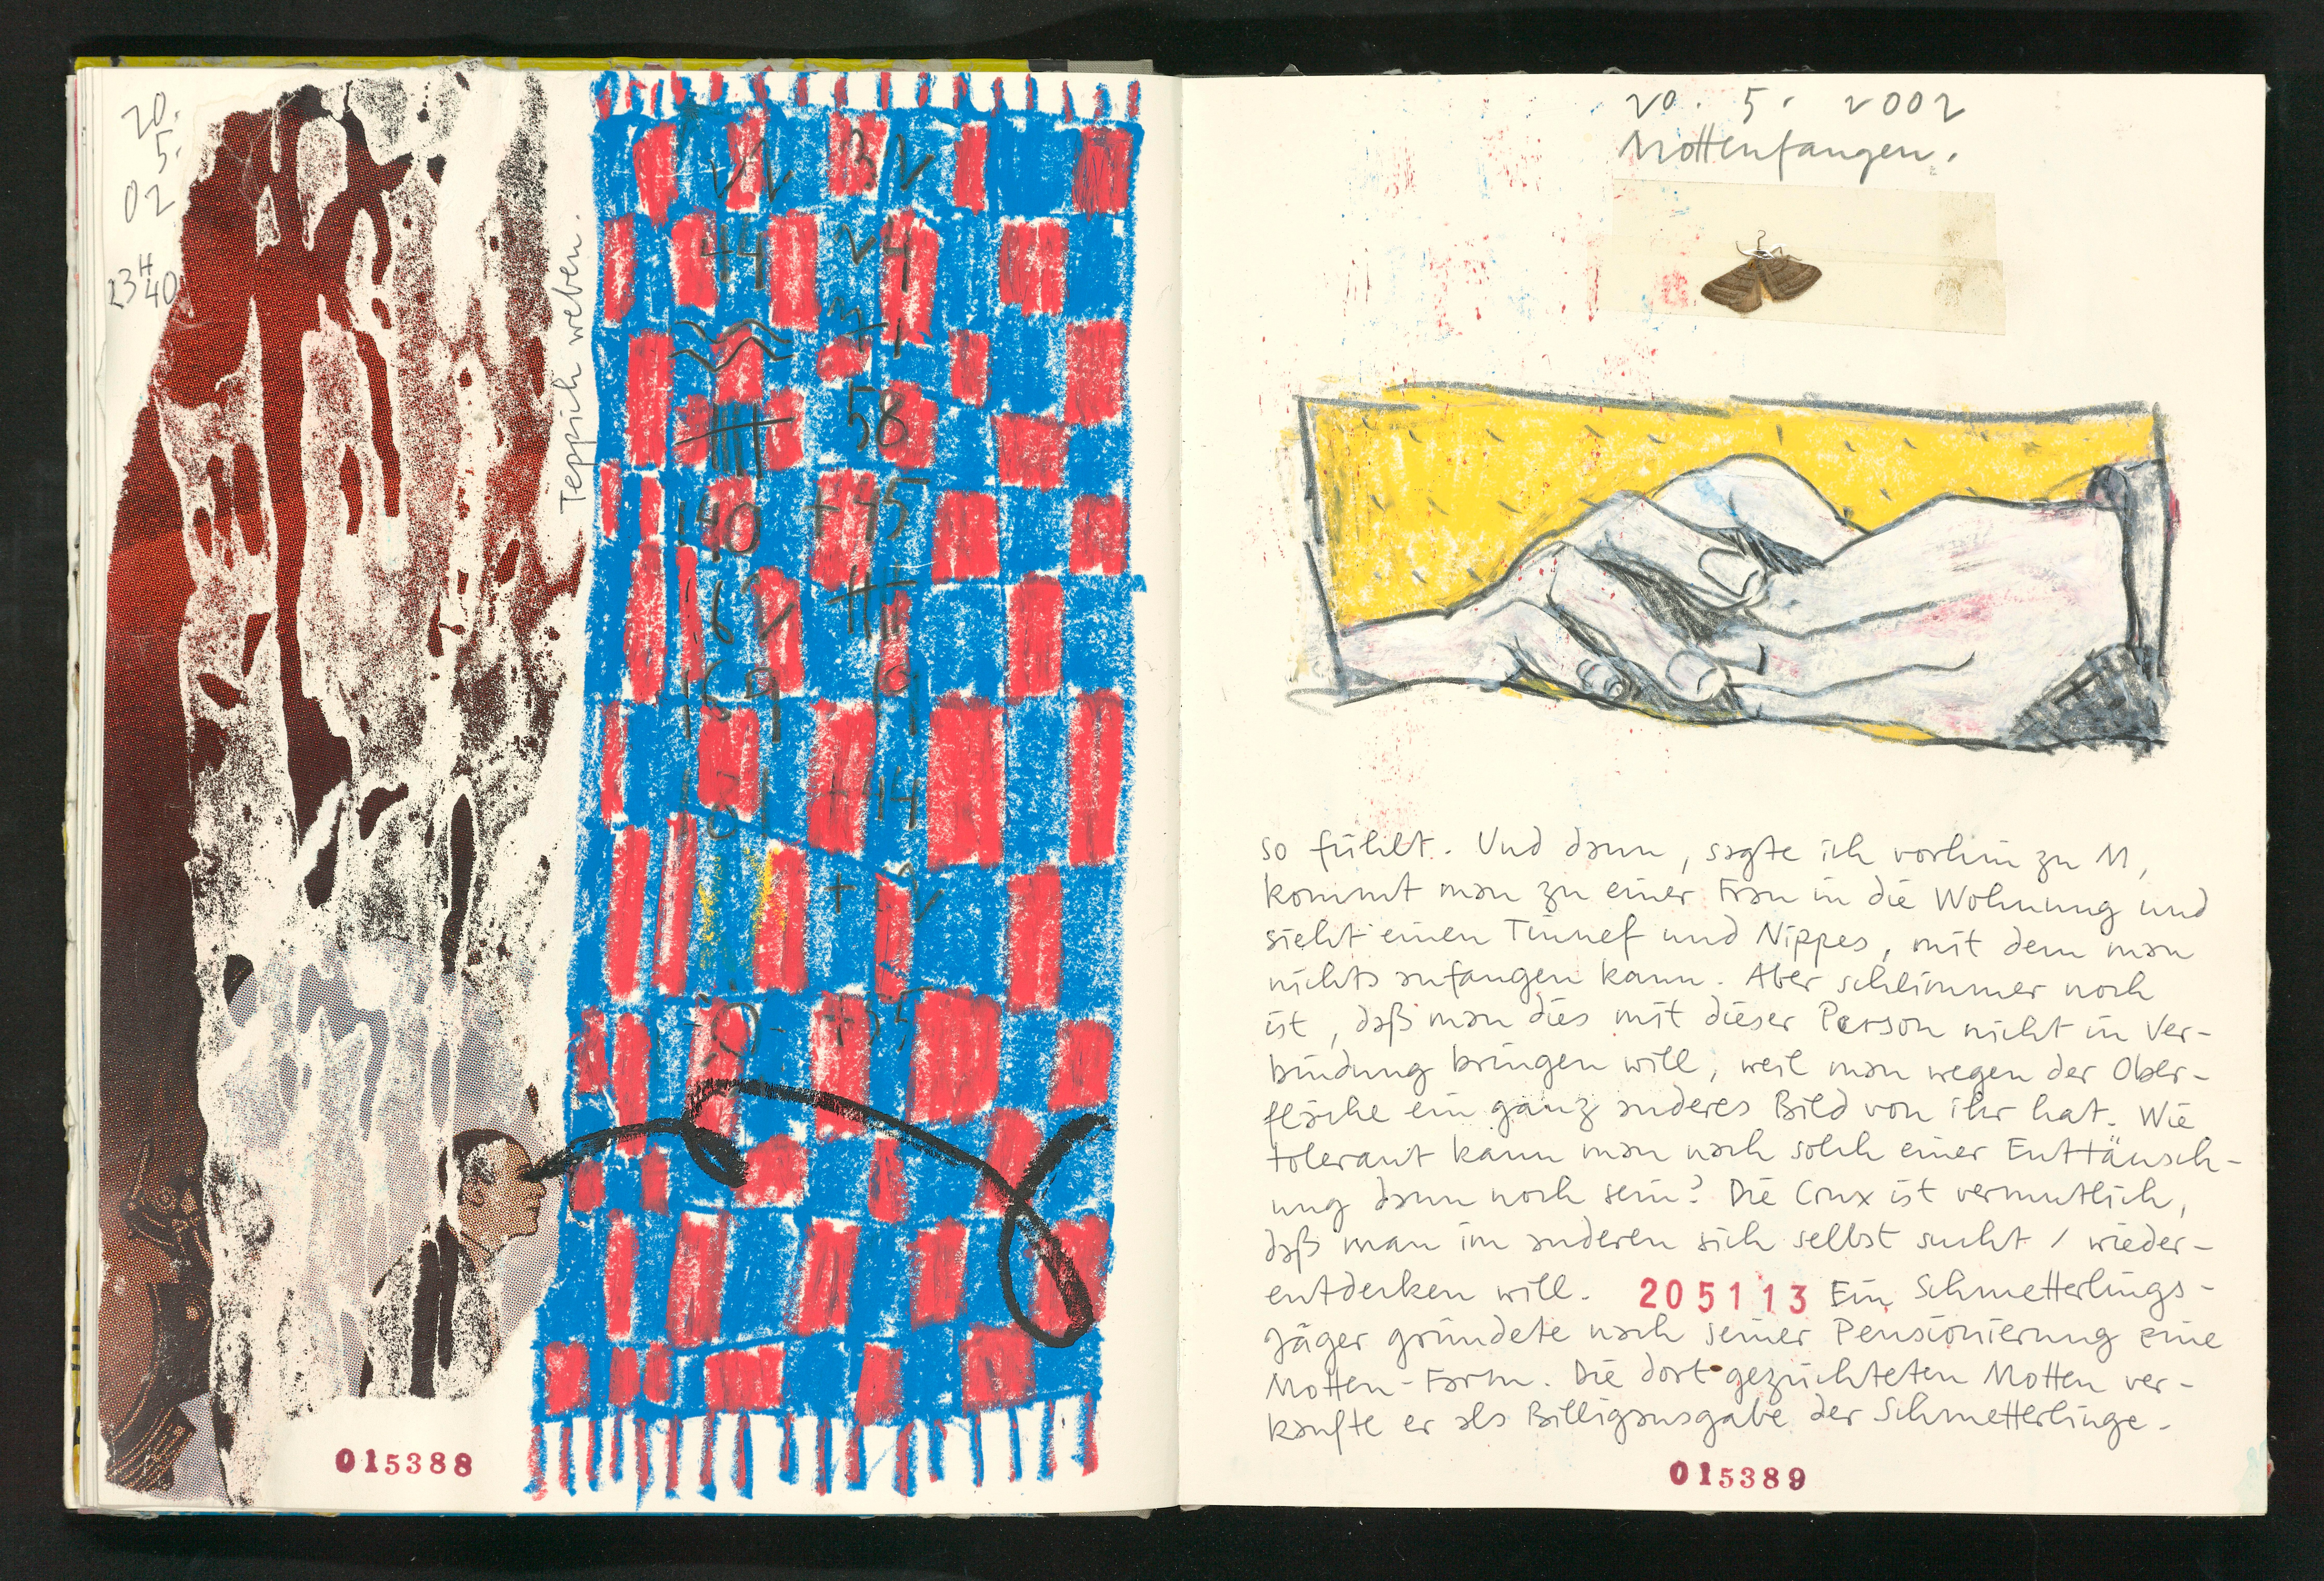 20.
5.
02
23H40
Teppich weben.
22 32
44 24
71
58
140 +45
62
169 19
181 +14
+ 2
+35
015388
20. 5. 2002
Mottenfangen.
so fühlt. Und dann, sagte ich vorhin zu M,
kommt man zu einer Frau in die Wohnung und
sieht einen Tinnef und Nippes, mit dem man
nichts anfangen kann. Aber schlimmer noch
ist, daß man dies mit dieser Person nicht in Ver-
bindung bringen will, weil man wegen der Ober-
fläche ein ganz anderes Bild von ihr hat. Wie
tolerant kann man nach solch einer Enttäusch-
ung dann noch sein? Die Crux ist vermutlich,
daß man im anderen sich selbst sucht / wieder-
entdecken will. 205113 Ein Schmetterlings-
jäger gründete nach seiner Pensionierung eine
Motten-Farm. Die dort gezüchteten Motten ver-
kaufte er als Billigausgabe der Schmetterlinge.
015389